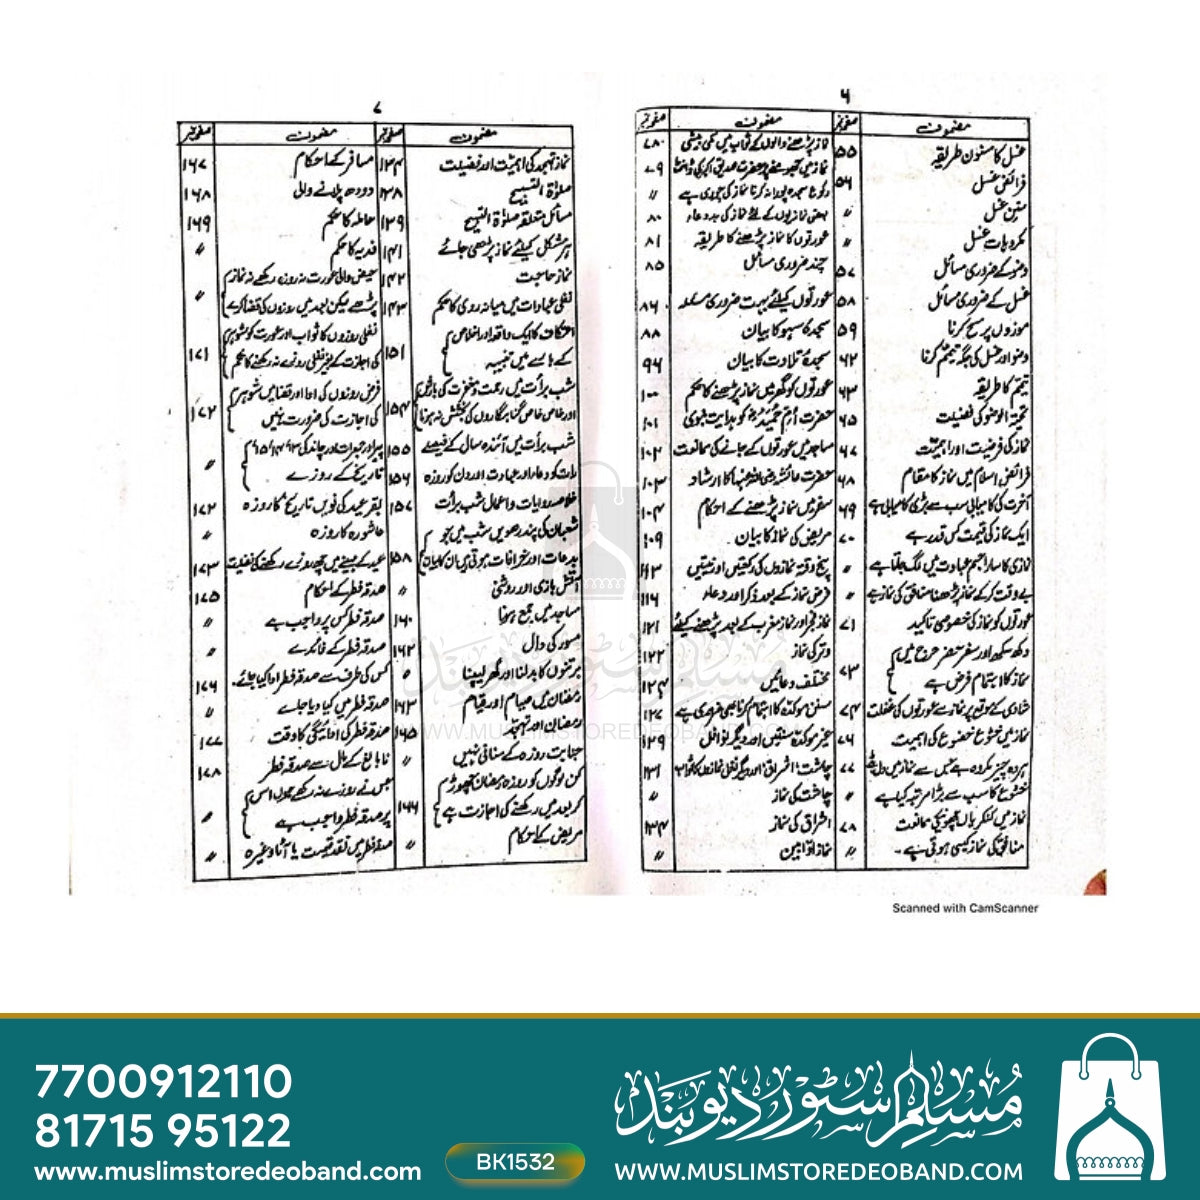 ۶
مضمون
صفحہ نمبر
غسل کا مسنون طریقہ ۵۵
فرائض غسل ۵۶
سنن غسل 〃
مکروہات غسل 〃
وضو کے ضروری مسائل ۵۷
غسل کے ضروری مسائل ۵۸
موزوں پر مسح کرنا ۵۹
وضو اور غسل کی جگہ تیمم کرنا ۶۲
تیمم کا طریقہ ۶۳
تحیۃ الوضو کی فضیلت ۶۵
نماز کی فرضیت اور اہمیت ۶۷
فرائض اسلام میں نماز کا مقام ۶۸
آخرت کی کامیابی سب سے بڑی کامیابی ہے ۶۹
ایک نماز کی قیمت کس قدر ہے ۷۰
نمازی کا سارا جسم عبادت میں لگ جاتا ہے 〃
بے وقت کر کے نماز پڑھنا منافق کی نماز ہے 〃
عورتوں کو نماز کی خصوصی تاکید ۷۱
دکھ سکھ اور سفر حضر مرض میں
نماز کا اہتمام فرض ہے ۷۳
شادی کے موقع پر نماز سے عورتوں کی غفلت ۷۴
نماز میں خشوع خضوع کی اہمیت ۷۶
ہر وہ چیز مکروہ ہے جس سے نماز میں دل بٹے ۷۷
خشوع کا سب سے بڑا مرتبہ کیا ہے 〃
نماز میں کنکریاں چھونیکی ممانعت ۷۸
منافق کی نماز کیسی ہوتی ہے۔ 〃
مضمون
صفحہ نمبر
نماز پڑھنے والوں کے ثواب میں کمی بیشی ۷۸
نماز میں جھومنے پر حضرت صدیق اکبر کی ڈانٹ ۷۹
رکوع سجدہ پورا نہ کرنا نماز کی چوری ہے 〃
بعض نمازیوں کے لئے نماز کی بد دعاء ۸۰
عورتوں کا نماز پڑھنے کا طریقہ ۸۱
چند ضروری مسائل ۸۵
عورتوں کیلئے بہت ضروری مسئلہ ۸۶
سجدہ سہو کا بیان ۸۸
سجدۂ تلاوت کا بیان ۹۶
عورتوں کو گھر میں نماز پڑھنے کا حکم ۱۰۰
حضرت ام حمیدؓ کو ہدایت نبوی ۱۰۱
مساجد میں عورتوں کے جانے کی ممانعت ۱۰۲
حضرت عائشہ رضی اللہ عنہا کا ارشاد ۱۰۳
سفر میں نماز پڑھنے کے احکام ۱۰۴
مریض کی نماز کا بیان۔ ۱۰۹
پنج وقتہ نمازوں کی رکعتیں اور نیتیں ۱۱۳
فرض نماز کے بعد ذکر اور دعاء ۱۱۶
نماز فجر اور نماز مغرب کے بعد پڑھنے کیلئے ۱۲۱
وتر کی نماز ۱۲۲
مختلف دعائیں ۱۲۴
سنن موکدہ کا اہتمام کرنا بھی ضروری ہے ۱۲۷
غیر موکدہ سنتیں اور دیگر نوافل ۱۲۹
چاشت، اشراق اور دیگر نفل نمازوں کا ثواب ۱۳۱
چاشت کی نماز 〃
اشراق کی نماز ۱۳۴
نماز اوابین 〃
۷
مضمون
صفحہ نمبر
نماز تہجد کی اہمیت اور فضیلت ۱۳۴
صلوٰۃ التسبیح ۱۳۸
مسائل متعلقہ صلوٰۃ التسبیح ۱۳۹
ہر مشکل کیلئے نماز پڑھی جائے ۱۴۱
نماز حاجت ۱۴۲
نفلی عبادات میں میانہ روی کا حکم ۱۴۳
اعتکاف کا ایک واقعہ اور اخلاص
کے بارے میں تنبیہ ۱۵۱
شب برأت میں رحمت و مغفرت کی بارش
اور خاص خاص گناہگاروں کی بخشش نہ ہونا ۱۵۴
شب برأت میں آئندہ سال کے فیصلے ۱۵۵
رات کو دعاء اور عبادت اور دن کو روزہ ۱۵۶
خلاصہ روایات و اعمال شب برأت ۱۵۷
شعبان کی پندرھویں شب میں جو
بدعات اور خرافات ہوتی ہیں ان کا بیان ۱۵۸
آتش بازی اور روشنی 〃
مساجد میں جمع ہونا ۱۶۰
مسور کی دال ۱۶۲
برتنوں کا بدلنا اور گھر لیپنا
رمضان میں صیام اور قیام ۱۶۳
رمضان اور تہجد ۱۶۵
جنابت روزہ کے منافی نہیں 〃
کن لوگوں کو روزہ رمضان چھوڑ
کر بعد میں رکھنے کی اجازت ہے ۱۶۶
مریض کے احکام 〃
مضمون
صفحہ نمبر
مسافر کے احکام ۱۶۷
دودھ پلانے والی ۱۶۸
حاملہ کا حکم ۱۶۹
فدیہ کا حکم 〃
حیض والی عورت نہ روزہ رکھے نہ نماز
پڑھے لیکن بعد میں روزوں کی قضا کرے 〃
نفلی روزوں کا ثواب اور عورت کو شوہر
کی اجازت کے بغیر نفلی روزے نہ رکھنے کا حکم ۱۷۱
فرض روزوں کی ادا اور قضا میں شوہر
کی اجازت کی ضرورت نہیں ۱۷۲
پیر اور جمعرات اور چاند کی ۱۳، ۱۴، ۱۵
تاریخ کے روزے 〃
بقر عید کی نویں تاریخ کا روزہ ۱۷۲
عاشورہ کا روزہ 〃
عید کے مہینے میں چھ روزے رکھنے کی فضیلت ۱۷۳
صدقہ فطر کے احکام ۱۷۵
صدقہ فطر کس پر واجب ہے 〃
صدقہ فطر کے فائدے 〃
کس کی طرف سے صدقہ فطر ادا کیا جائے۔ ۱۷۶
صدقہ فطر میں کیا دیا جائے 〃
صدقہ فطر کی ادائیگی کا وقت ۱۷۷
نابالغ کے مال سے صدقہ فطر ۱۷۸
جس نے روزے نہ رکھے ہوں اس
پر صدقہ فطر واجب ہے 〃
صدقہ فطر میں نقد قیمت یا آٹا وغیرہ 〃
مسلم سٹور دیوبند
WWW.MUSLIMSTOREDEOBAND.COM
Scanned with CamScanner
7700912110
81715 95122
www.muslimstoredeoband.com
BK1532
مسلم سٹور دیوبند
WWW.MUSLIMSTOREDEOBAND.COM